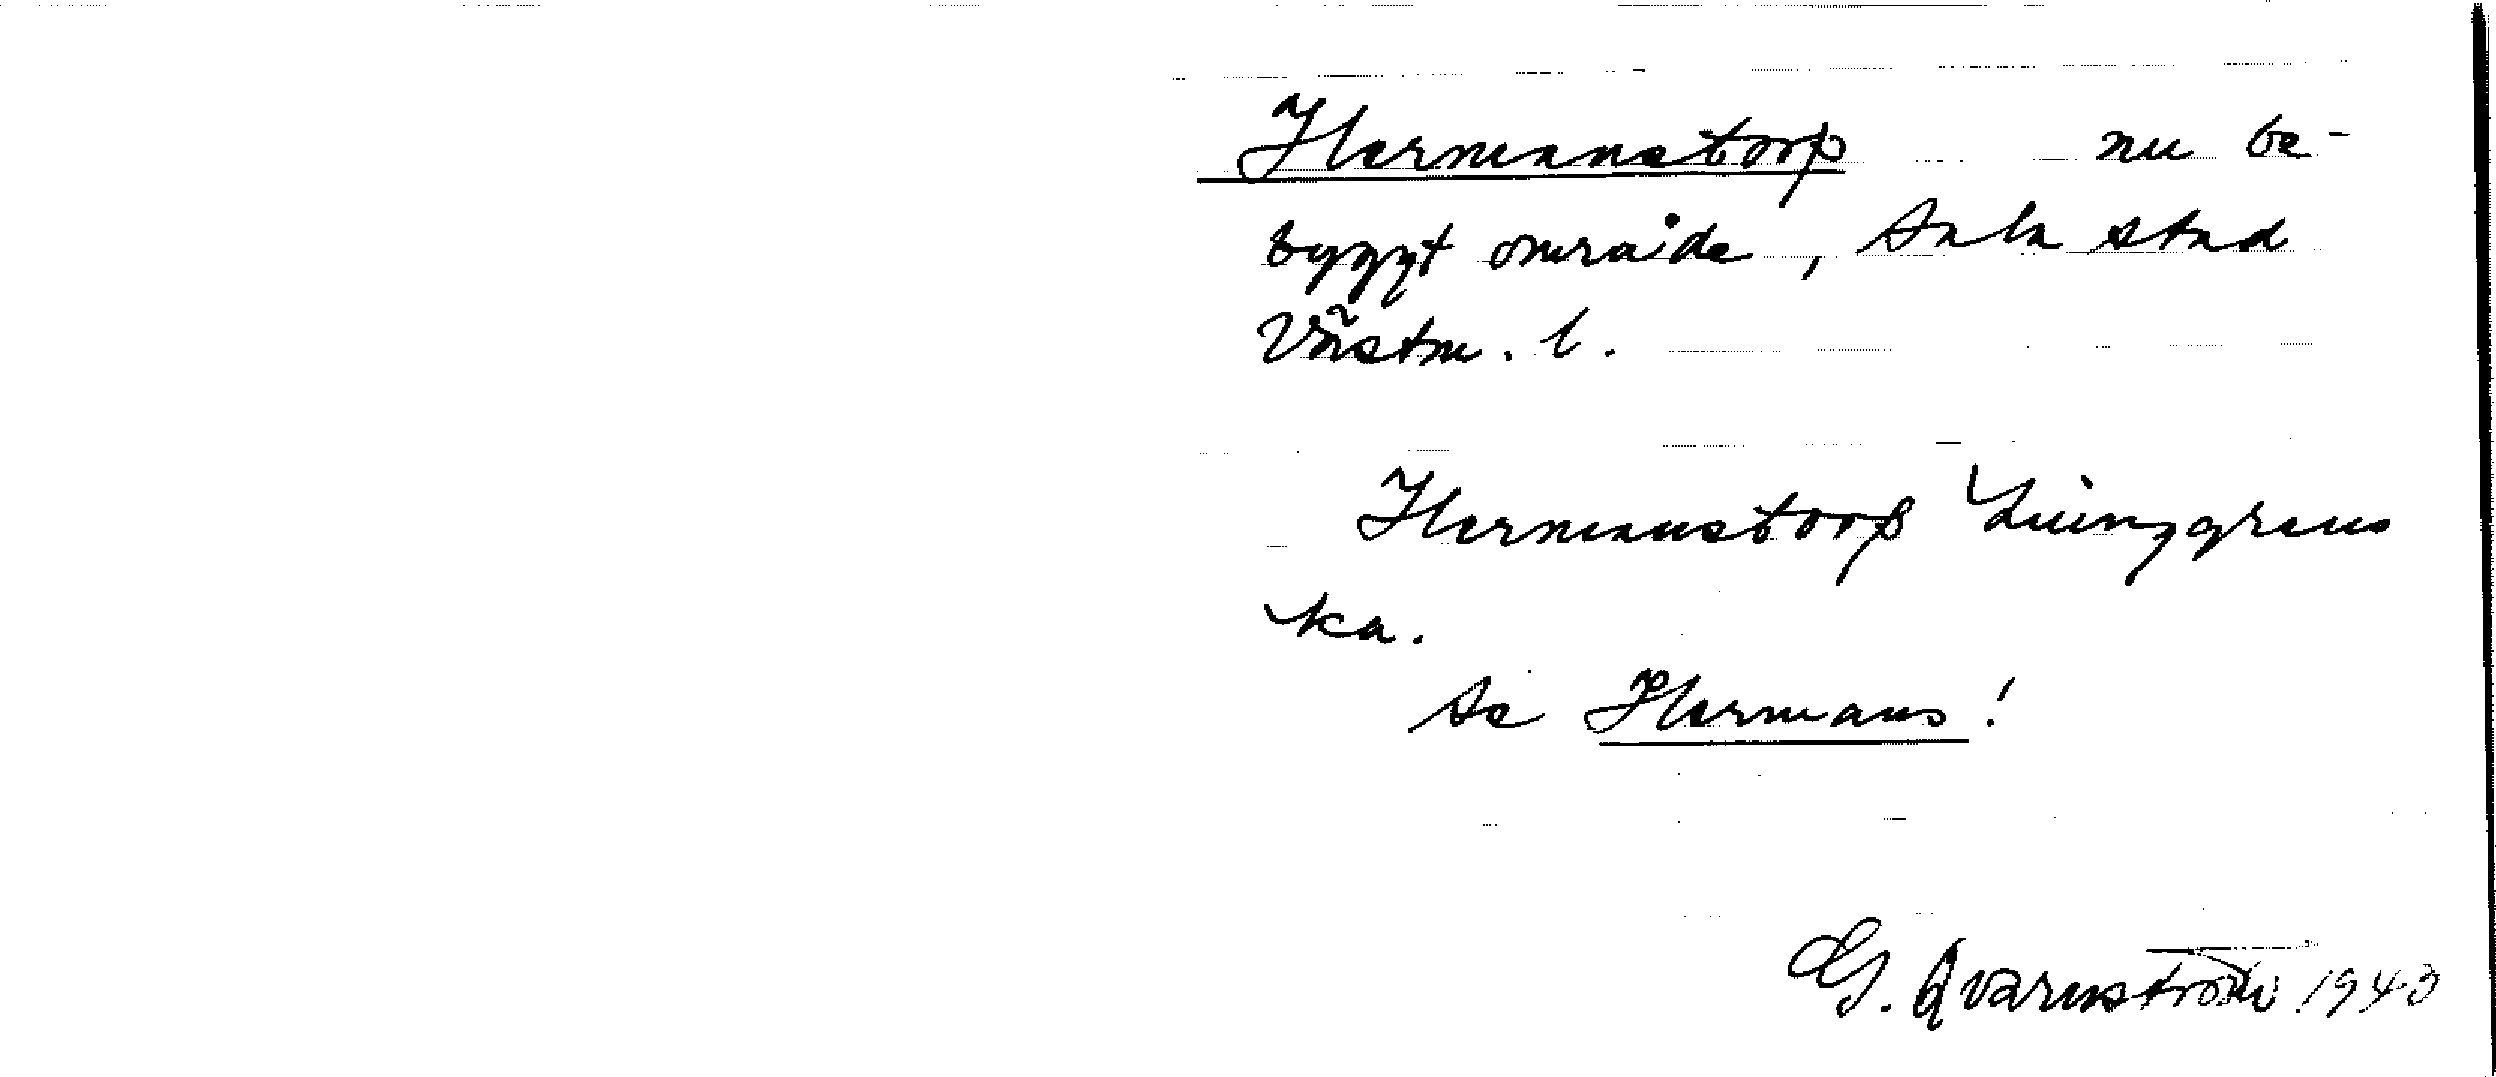 Hermanstorp nu be-
byggt område, Sala stad
Västm. l.
Hermanstorp
ka.
Se Hermans!
G. Qvarnström 1943